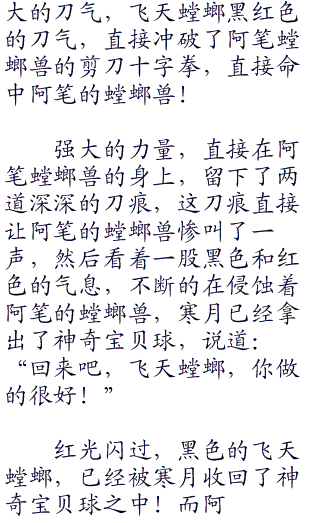 大的刀气，飞天螳螂黑红色
的刀气，直接冲破了阿笔螳
螂兽的剪刀十字拳，直接命
中阿笔的螳螂兽！
强大的力量，直接在阿
笔螳螂兽的身上，留下了两
道深深的刀痕，这刀痕直接
让阿笔的螳螂兽惨叫了一
声，然后看着一股黑色和红
色的气息，不断的在侵蚀着
阿笔的螳螂兽，寒月已经拿
出了神奇宝贝球，说道：
“回来吧，飞天螳螂，你做
的很好！”
红光闪过，黑色的飞天
螳螂，已经被寒月收回了神
奇宝贝球之中！而阿